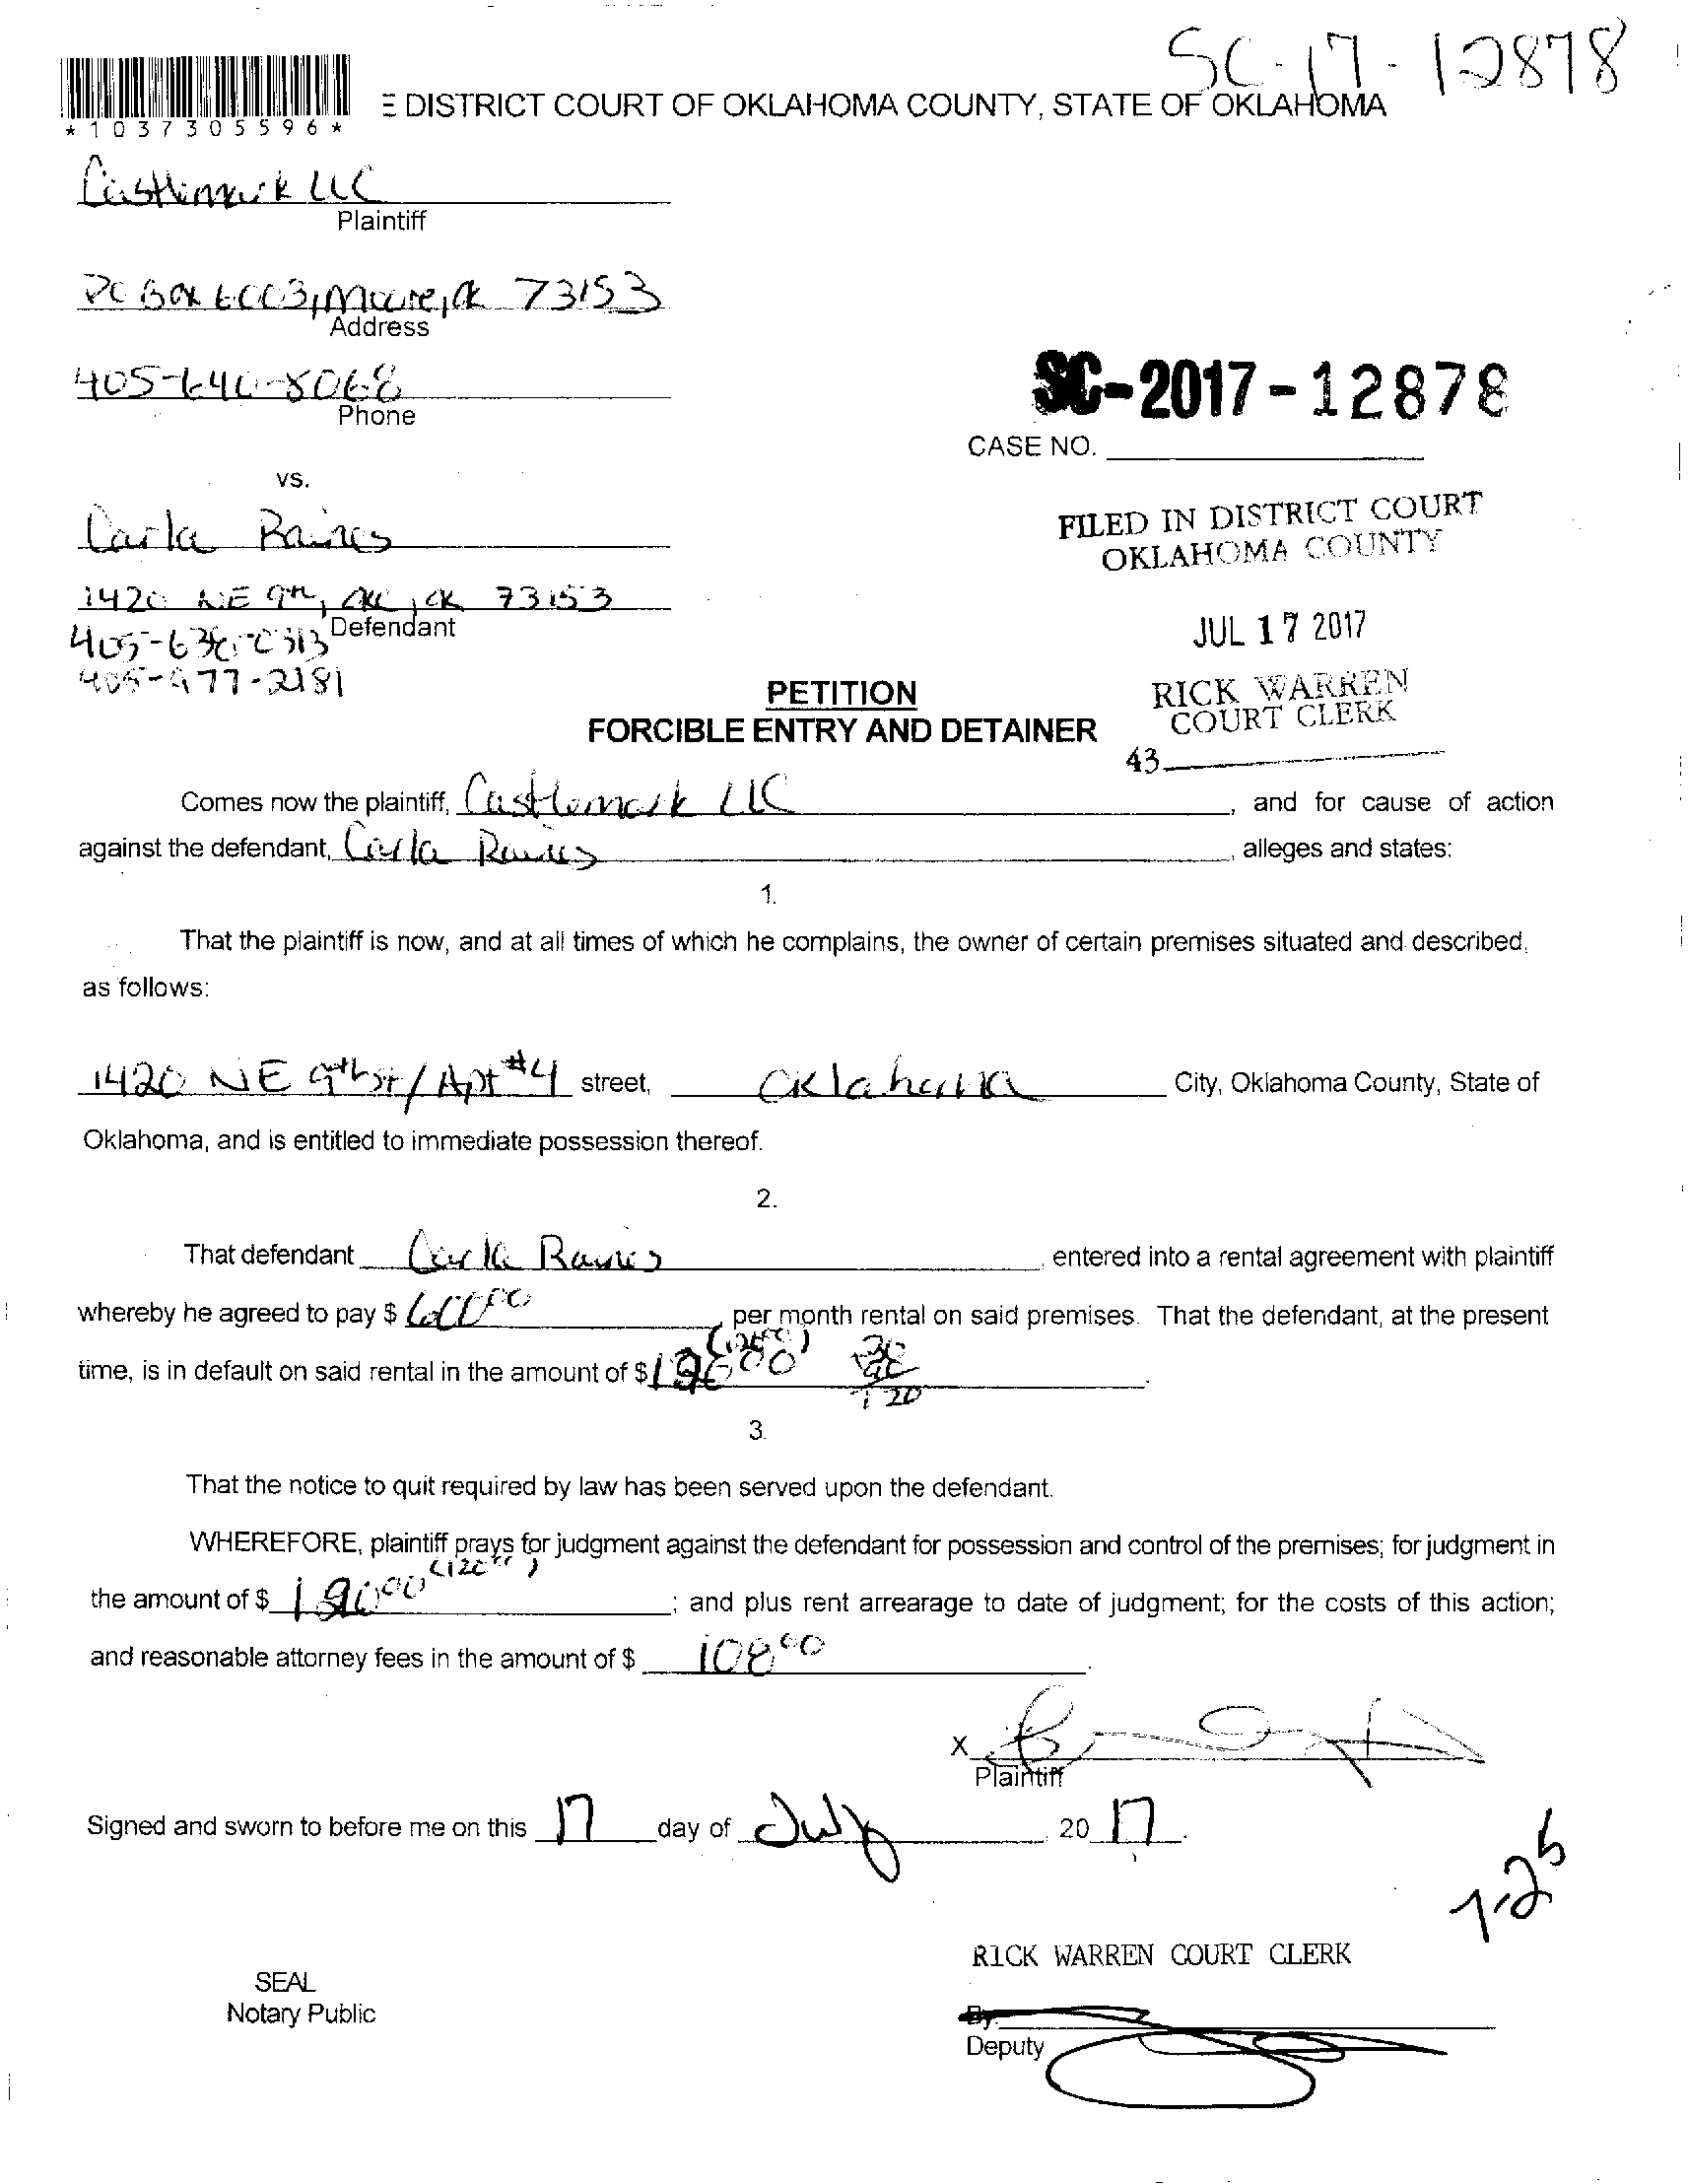 SC-17-12878
* 1 0 3 7 3 0 5 5 9 6 *
E DISTRICT COURT OF OKLAHOMA COUNTY, STATE OF OKLAHOMA
Castlemark LLC
Plaintiff
PO Box 6003, Moore, OK 73153
Address
405-640-8068
Phone
SC-2017-12878
CASE NO.
vs.
Carla Raines
FILED IN DISTRICT COURT
OKLAHOMA COUNTY
1420 NE 9th, OKC, OK 73153
Defendant
JUL 17 2017
405-977-2181
RICK WARREN
COURT CLERK
43
PETITION
FORCIBLE ENTRY AND DETAINER
Comes now the plaintiff, Castlemark LLC, and for cause of action
against the defendant, Carla Raines, alleges and states:
1.
That the plaintiff is now, and at all times of which he complains, the owner of certain premises situated and described,
as follows:
1420 NE 9th St / Apt #4 street, Oklahoma City, Oklahoma County, State of
Oklahoma, and is entitled to immediate possession thereof.
2.
That defendant Carla Raines, entered into a rental agreement with plaintiff
whereby he agreed to pay $ 600.00, per month rental on said premises. That the defendant, at the present
time, is in default on said rental in the amount of $
3.
That the notice to quit required by law has been served upon the defendant.
WHEREFORE, plaintiff prays for judgment against the defendant for possession and control of the premises; for judgment in
the amount of $ ; and plus rent arrearage to date of judgment; for the costs of this action;
and reasonable attorney fees in the amount of $ 108.00.
X
Plaintiff
Signed and sworn to before me on this 17 day of July, 20 17.
7-25
RICK WARREN COURT CLERK
SEAL
Notary Public
By:
Deputy